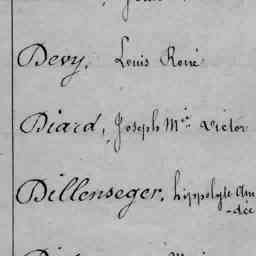 Devy, Louis René
Diard, Joseph Mie Victor
Dillenseger, hippolyte Am
-dée